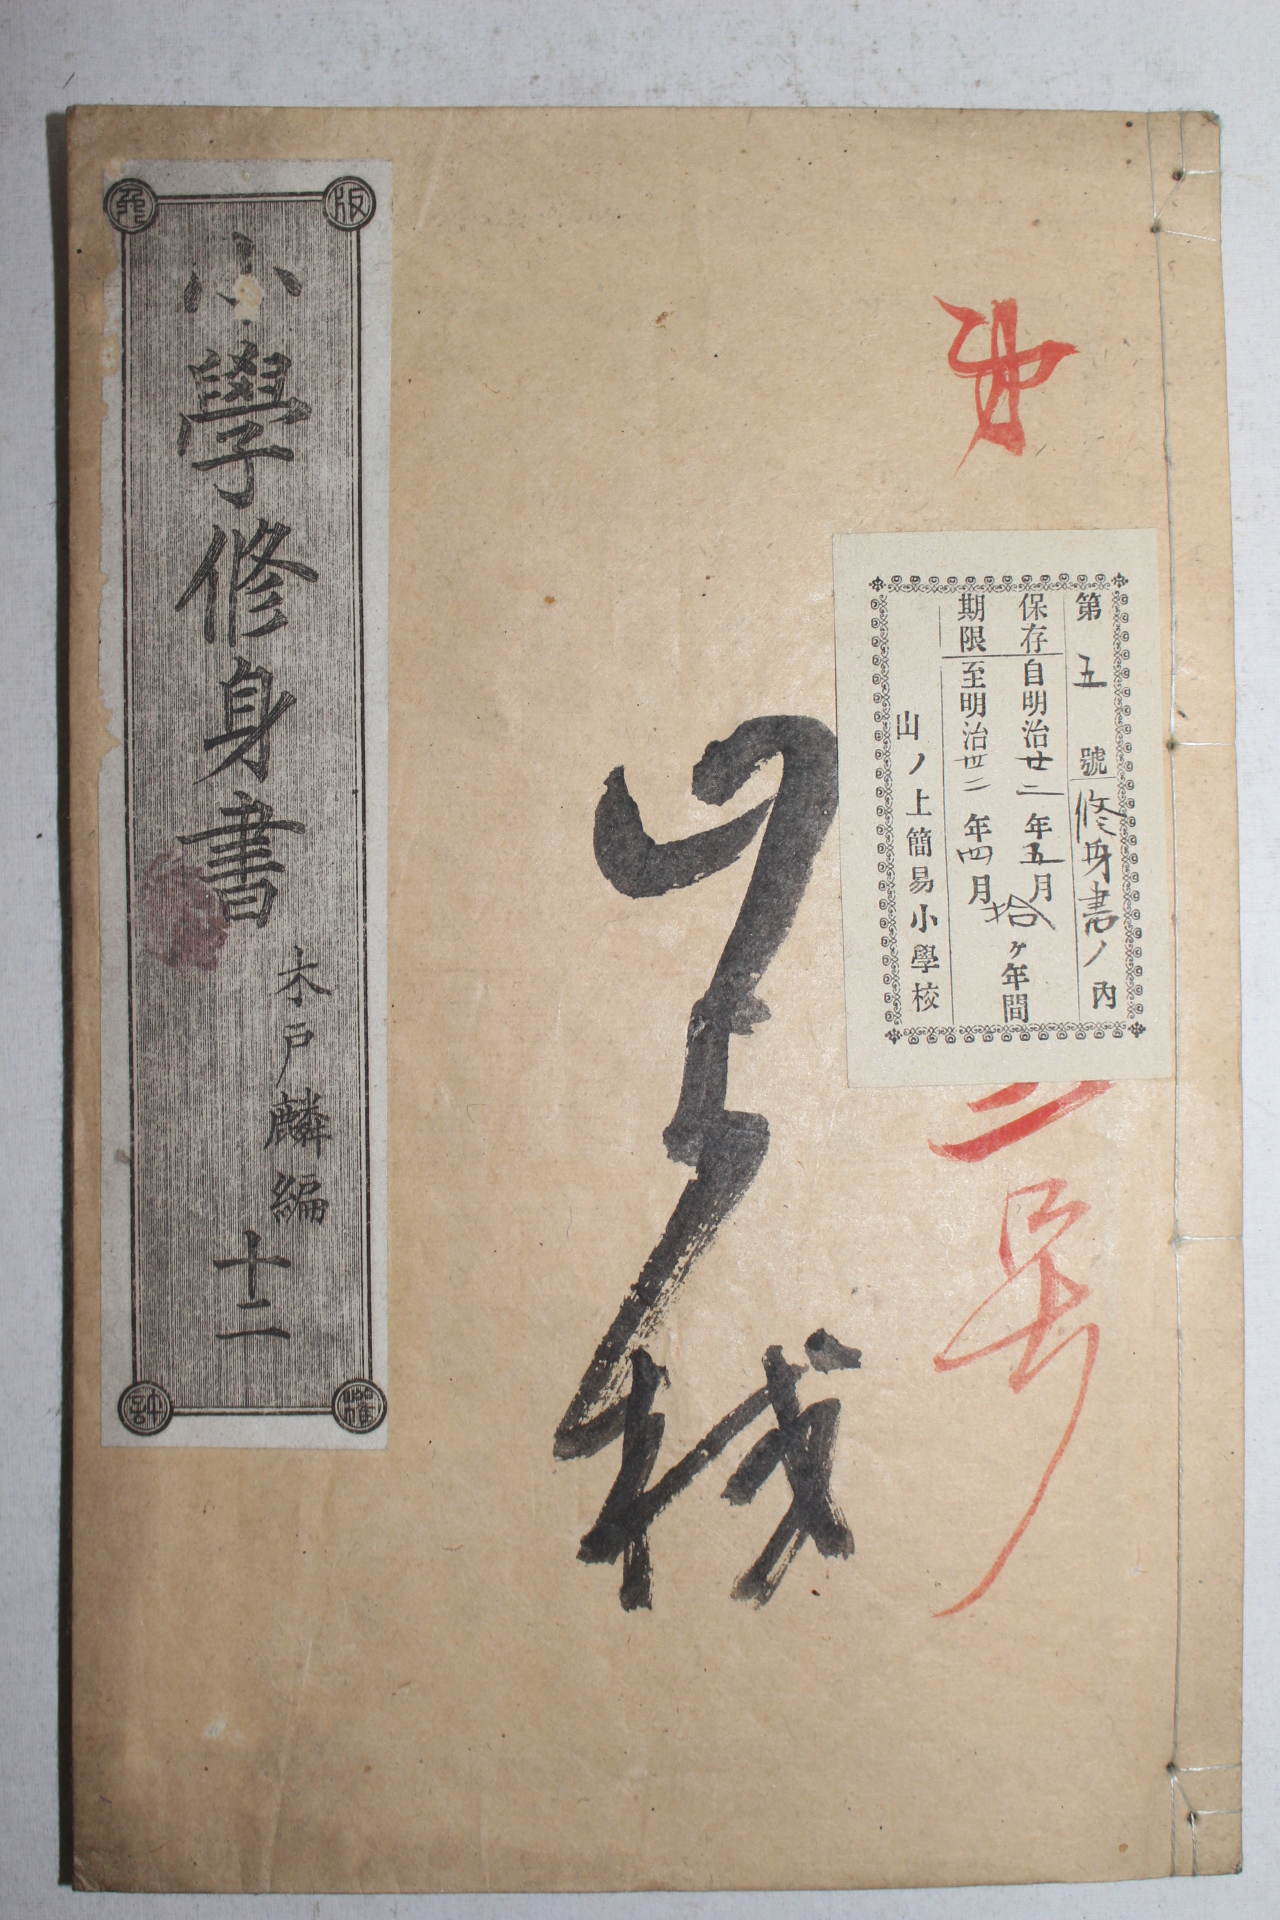 第
二号
第五號修身書ノ内
保存期限
自明治廿二年五月
至明治卅二年四月
拾ヶ年間
山ノ上簡易小學校
山ノ上校
版權免許
小學修身書
木戸麟編
十二